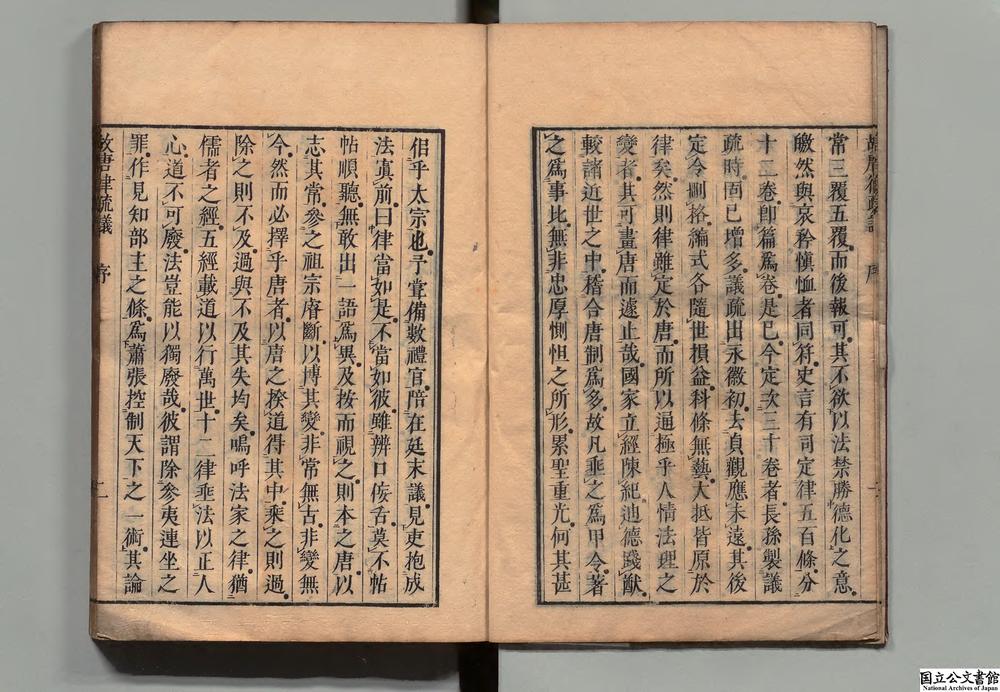 故唐律疏議 序 二
常三覆五覆而後報可其不欲以法禁勝德化之意
皦然與哀矜愼恤者同符史言有司定律五百條分
十二卷卽篇爲卷是已今定次三十卷者長孫製議
疏時固已增多議疏出永徽初去貞觀應未遠其後
定令刪格編式各隨世損益科條無藝大抵皆原於
律矣然則律雖定於唐而所以通極乎人情法理之
變者其可畫唐而遽止哉國家立經陳紀迪德踐猷
較諸近世之中稽合唐制爲多故凡垂之爲甲令著
之爲事比無非忠厚惻怛之所形累聖重光何其甚
侣乎太宗也予嘗備數禮官陪在廷末議見吏抱成
法寘前曰律當如是不當如彼雖辨口佞舌莫不帖
帖順聽無敢出一語爲異及按而視之則本之唐以
志其常參之祖宗睿斷以博其變非常無古非變無
今然而必擇乎唐者以唐之揆道得其中乘之則過
除之則不及過與不及其失均矣嗚呼法家之律猶
儒者之經五經載道以行萬世十二律垂法以正人
心道不可廢法豈能以獨廢哉彼謂除參夷連坐之
罪作見知部主之條爲蕭張控制天下之一術其論
故唐律疏議 序 二
国立公文書館
National Archives of Japan